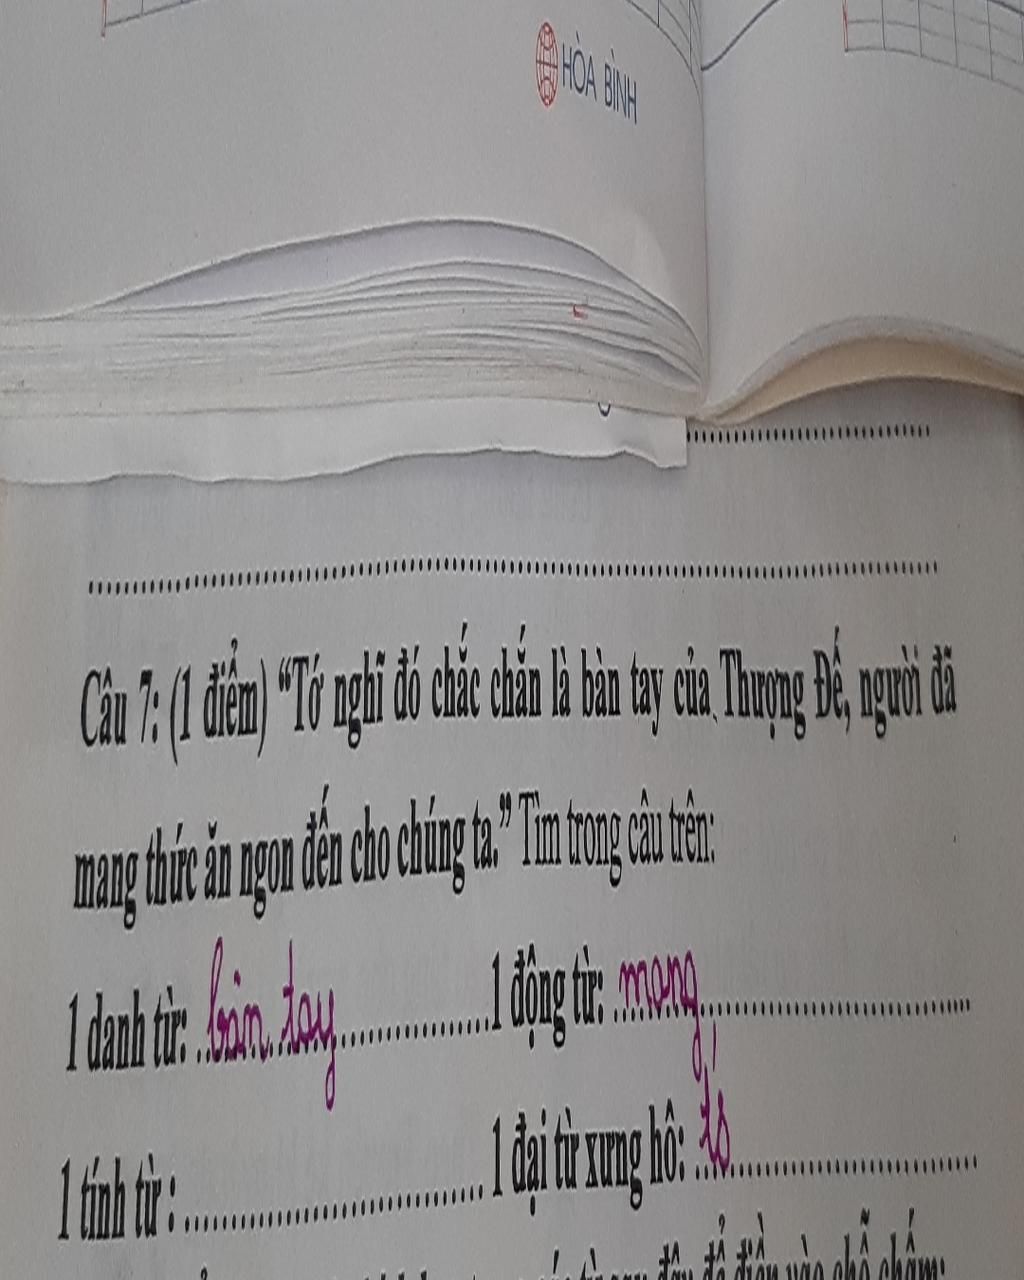 HÒA BÌNH
Câu 7: (1 điểm) “Tớ nghĩ đó chắc chắn là bàn tay của Thượng Đế, người đã
mang thức ăn ngon đến cho chúng ta.” Tìm trong câu trên:
1 danh từ: bàn tay 1 động từ: mang
1 tính từ : 1 đại từ xưng hô: tớ
từ sau đây để điền vào chỗ chấm: